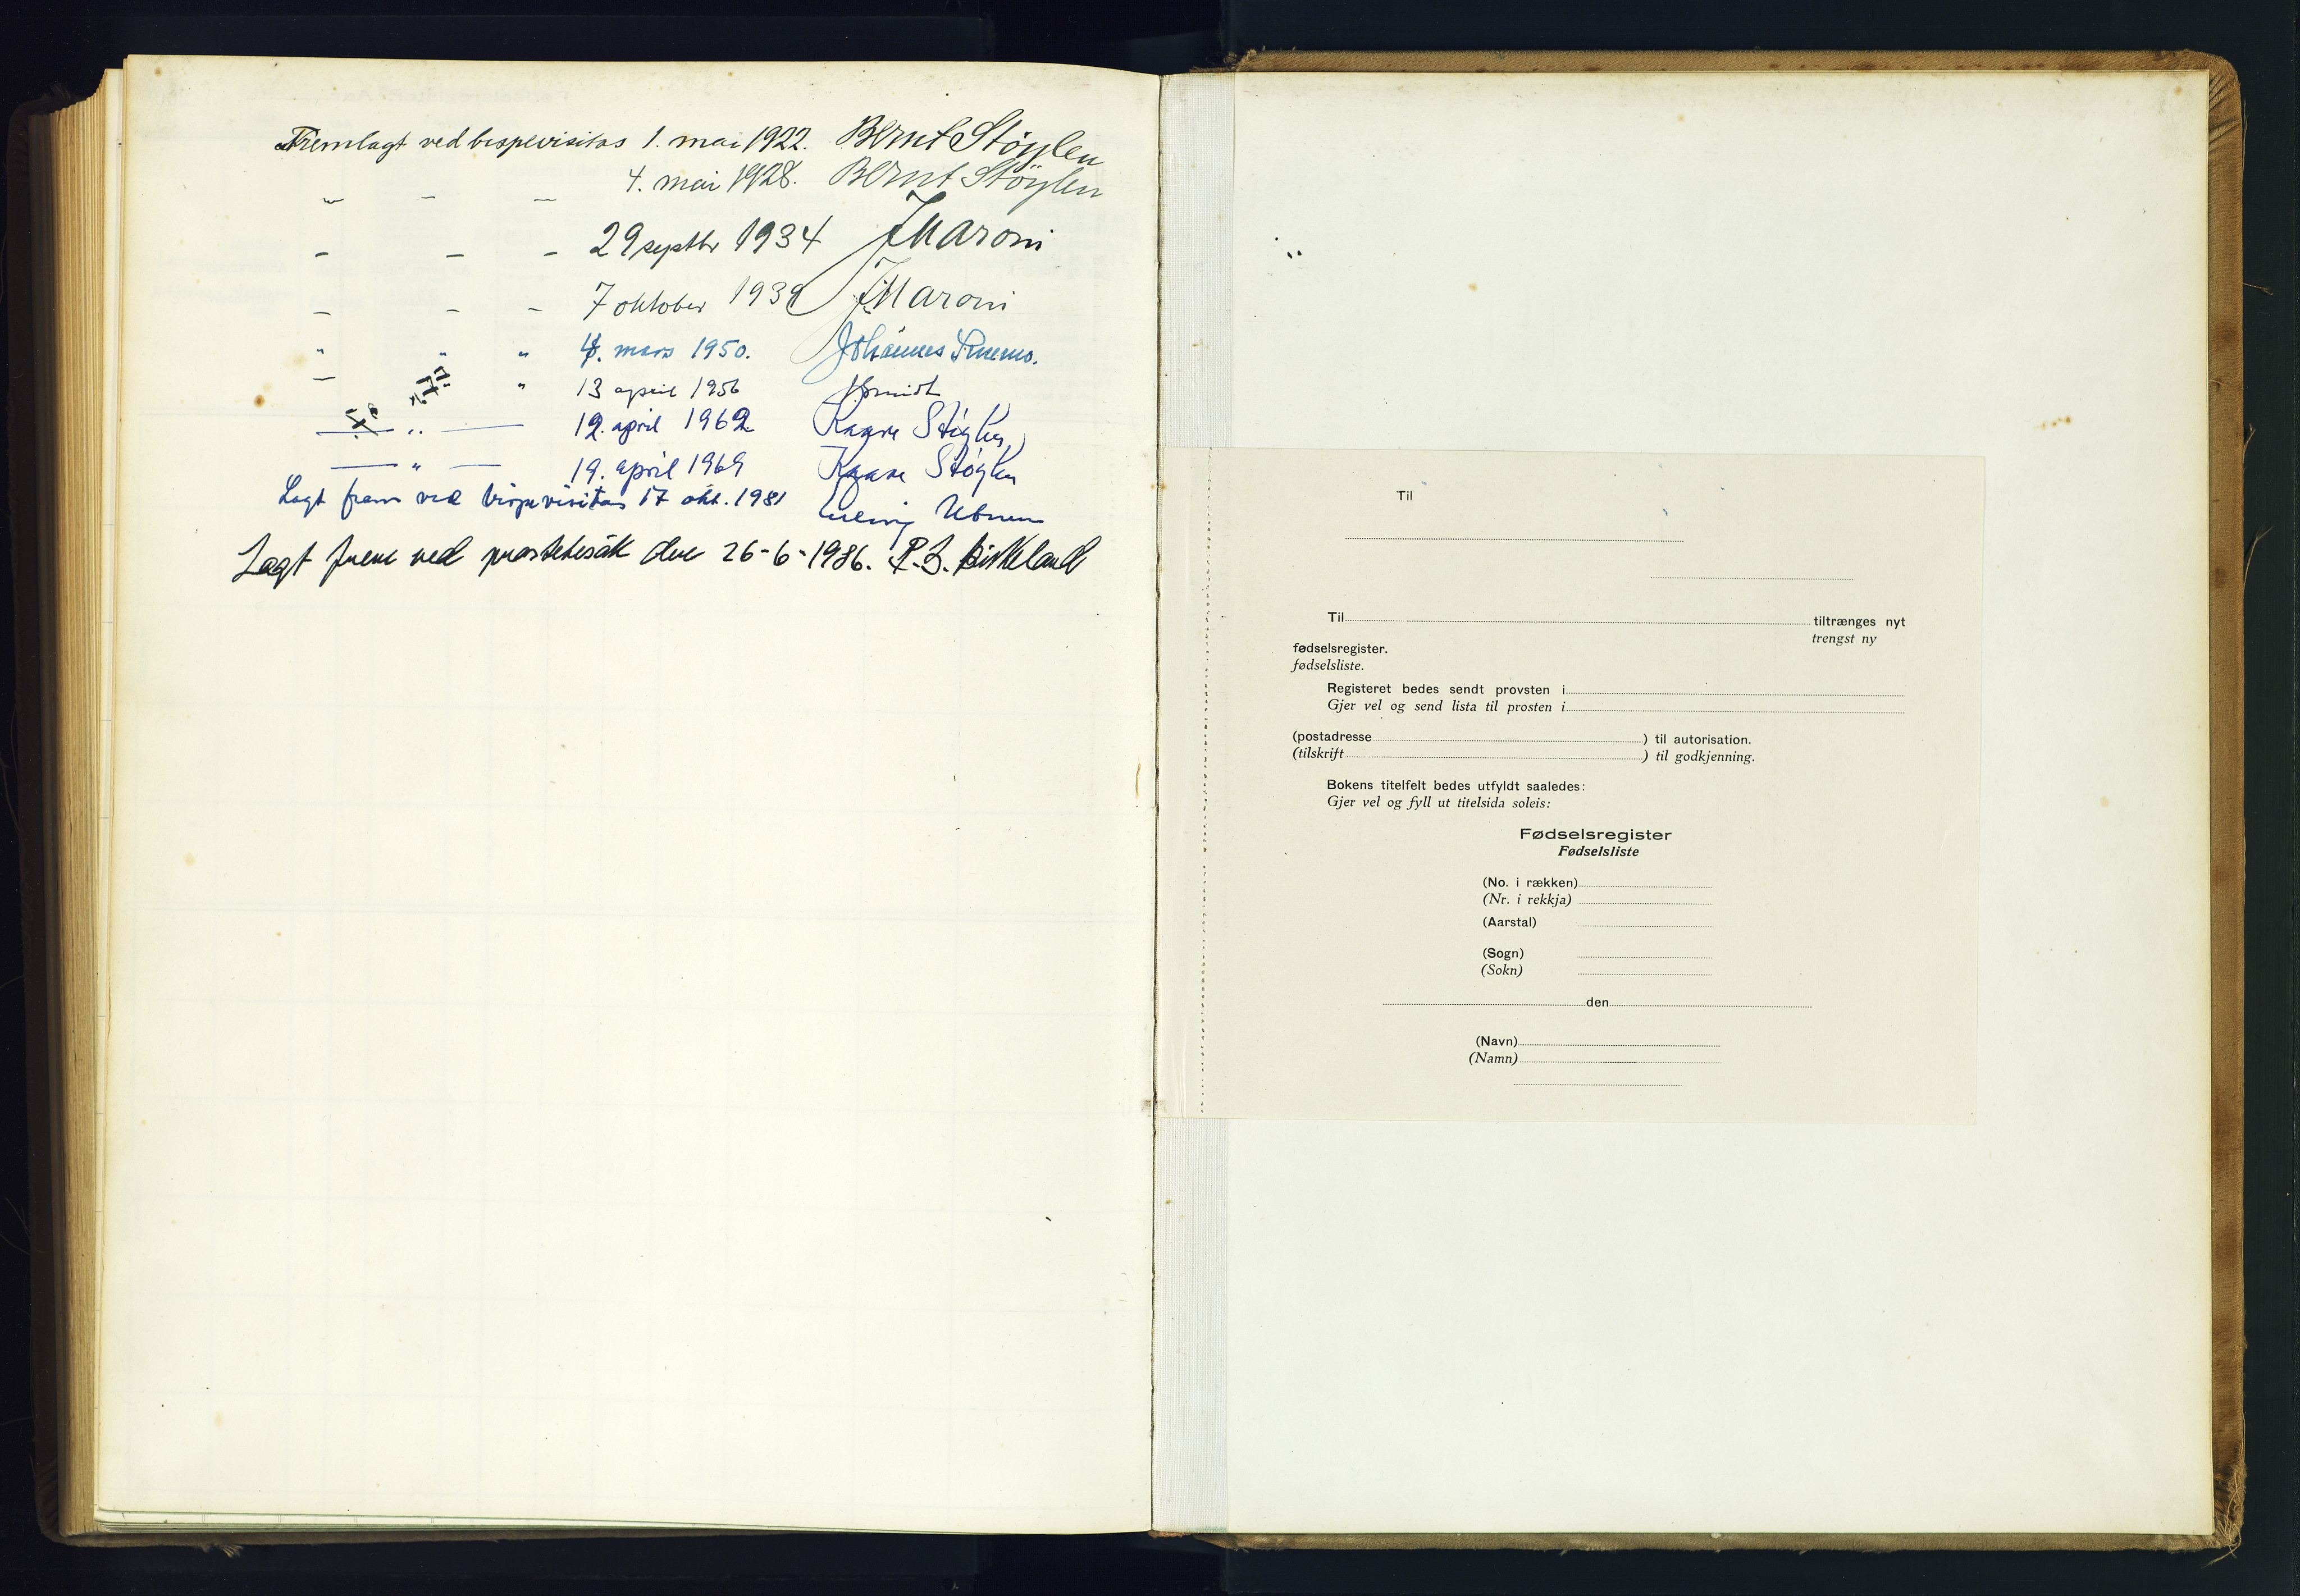 Fremlagt ved bispevisitas 1. mai 1922. Bernt Støylen
" - - 4. mai 1928. Bernt Støylen
- - - 29 septbr 1934 J Maroni
- - - 7 oktober 1939 J Maroni
" " " 8. mars 1950. Johannes Smemo.
- " " 13 april 1956 J. Smidt
" 12. april 1962 Kaare Støylen
" 19. april 1969 Kaare Støylen
Lagt fram ved bispevisitas 17 okt. 1981
Lagt frem ved prostebesøk den 26-6-1986. P.S. Birkeland
Til
Til tiltrænges nyt
trengst ny
fødselsregister.
fødselsliste.
Registeret bedes sendt provsten i
Gjer vel og send lista til prosten i
(postadresse ) til autorisation.
(tilskrift ) til godkjenning.
Bokens titelfelt bedes utfyldt saaledes:
Gjer vel og fyll ut titelsida soleis:
Fødselsregister
Fødselsliste
(No. i rækken)
(Nr. i rekkja)
(Aarstal)
(Sogn)
(Sokn)
den
(Navn)
(Namn)